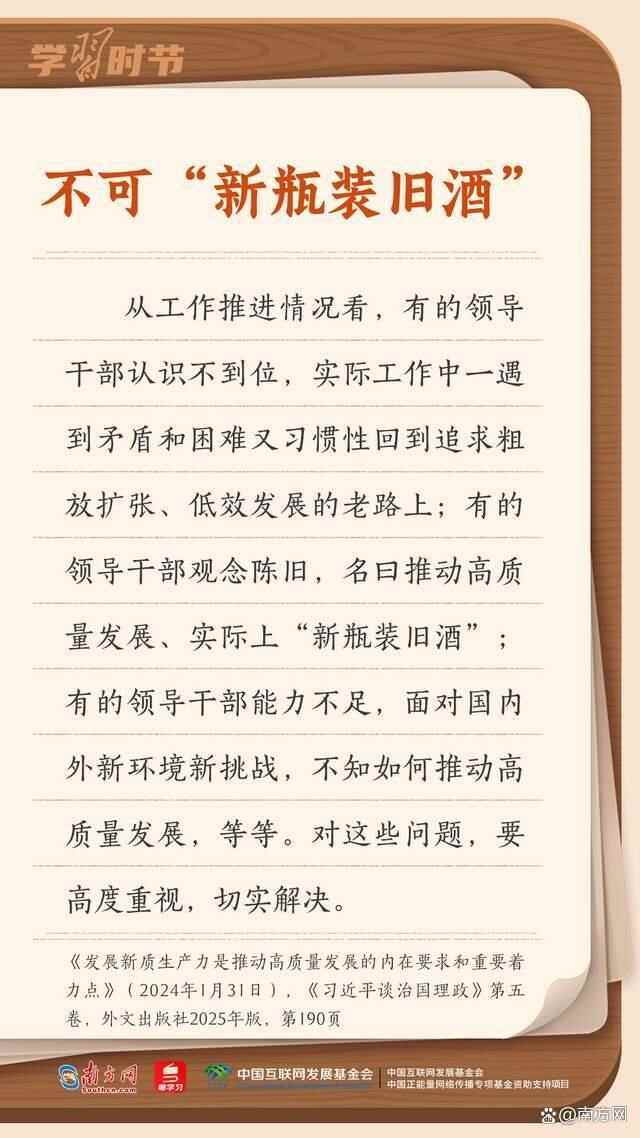 学习时节
不可“新瓶装旧酒”
从工作推进情况看，有的领导
干部认识不到位，实际工作中一遇
到矛盾和困难又习惯性回到追求粗
放扩张、低效发展的老路上；有的
领导干部观念陈旧，名曰推动高质
量发展、实际上“新瓶装旧酒”；
有的领导干部能力不足，面对国内
外新环境新挑战，不知如何推动高
质量发展，等等。对这些问题，要
高度重视，切实解决。
《发展新质生产力是推动高质量发展的内在要求和重要着
力点》（2024年1月31日），《习近平谈治国理政》第五
卷，外文出版社2025年版，第190页
南方网
Southcn.com
粤学习
中国互联网发展基金会
中国互联网发展基金会
中国正能量网络传播专项基金资助支持项目
@南方网